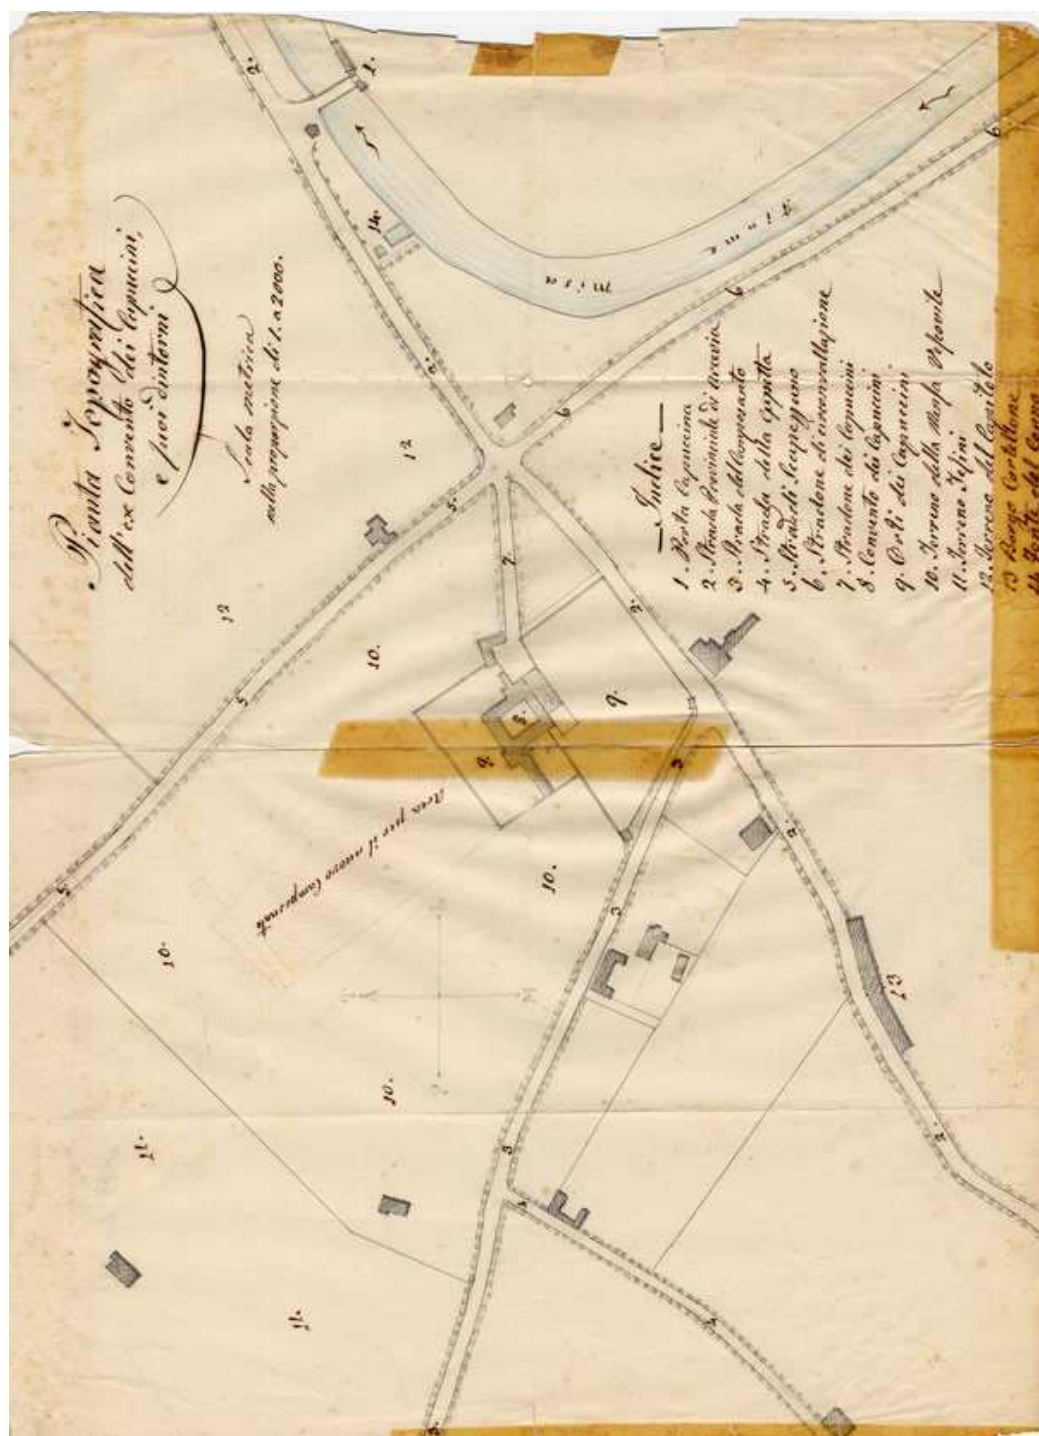 Pianta Topografica
dell'ex Convento dei Capuccini,
e suoi dintorni
Scala metrica
nella proporzione di 1. a 2000.
Indice
1. Porta Capuccina
2. Strada Provinciale di Arcevia
3. Strada del Camposanto
4. Strada della
5. Strada di Scapezzano
6. Stradone di circonvallazione
7. Stradone dei Capuccini
8. Convento dei Capuccini
9. Orti dei Capuccini
10. Terreno della Mensa Vescovile
11. Terreno
12. Terreno del Capitolo
13 Borgo
14 Fonte del
Fiume
Misa
Area per il nuovo Camposanto
1.
2.
14
2.
6
6
6
12
12
5.
7
2.
10.
5
9.
8.
9.
3
2.
5
10.
3
10.
13
10.
11.
3
2.
4
11.
4
3.
M